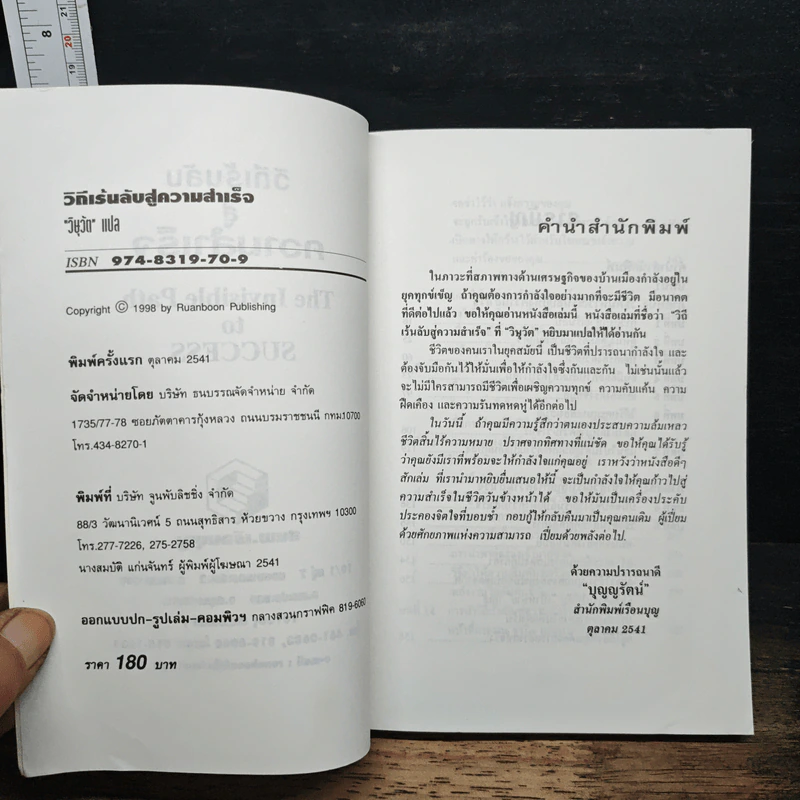 8
21
20
19
วิถีเร้นลับสู่ความสำเร็จ
"วิษุวัต" แปล
ISBN 974-8319-70-9
Copyright © 1998 by Ruanboon Publishing
พิมพ์ครั้งแรก ตุลาคม 2541
จัดจำหน่ายโดย บริษัท ธนบรรณจัดจำหน่าย จำกัด
1735/77-78 ซอยภัตตาคารกุ้งหลวง ถนนบรมราชชนนี กทม.10700
โทร.434-8270-1
พิมพ์ที่ บริษัท จูนพับลิชชิ่ง จำกัด
88/3 วัฒนานิเวศน์ 5 ถนนสุทธิสาร ห้วยขวาง กรุงเทพฯ 10300
โทร.277-7226, 275-2758
นางสมบัติ แก่นจันทร์ ผู้พิมพ์ผู้โฆษณา 2541
ออกแบบปก-รูปเล่ม-คอมพิวฯ กลางสวนกราฟฟิค 819-6060
ราคา 180 บาท
คำนำสำนักพิมพ์
ในภาวะที่สภาพทางด้านเศรษฐกิจของบ้านเมืองกำลังอยู่ใน
ยุคทุกข์เข็ญ ถ้าคุณต้องการกำลังใจอย่างมากที่จะมีชีวิต มีอนาคต
ที่ดีต่อไปแล้ว ขอให้คุณอ่านหนังสือเล่มนี้ หนังสือเล่มที่ชื่อว่า "วิถี
เร้นลับสู่ความสำเร็จ" ที่ "วิษุวัต" หยิบมาแปลให้ได้อ่านกัน
ชีวิตของคนเราในยุคสมัยนี้ เป็นชีวิตที่ปรารถนากำลังใจ และ
ต้องจับมือกันไว้ให้มั่นเพื่อให้กำลังใจซึ่งกันและกัน ไม่เช่นนั้นแล้ว
จะไม่มีใครสามารถมีชีวิตเพื่อเผชิญความทุกข์ ความคับแค้น ความ
ฝืดเคือง และความรันทดหดหู่ได้อีกต่อไป
ในวันนี้ ถ้าคุณมีความรู้สึกว่าตนเองประสบความล้มเหลว
ชีวิตสิ้นไร้ความหมาย ปราศจากทิศทางที่แน่ชัด ขอให้คุณได้รับรู้
ว่าคุณยังมีเราที่พร้อมจะให้กำลังใจแก่คุณอยู่ เราหวังว่าหนังสือดีๆ
สักเล่ม ที่เรานำมาหยิบยื่นเสนอให้นี้ จะเป็นกำลังใจให้คุณก้าวไปสู่
ความสำเร็จในชีวิตวันข้างหน้าได้ ขอให้มันเป็นเครื่องประดับ
ประคองจิตใจที่บอบช้ำ กอบกู้ให้กลับคืนมาเป็นคุณคนเดิม ผู้เปี่ยม
ด้วยศักยภาพแห่งความสามารถ เปี่ยมด้วยพลังต่อไป.
ด้วยความปรารถนาดี
"บุญญรัตน์"
สำนักพิมพ์เรือนบุญ
ตุลาคม 2541